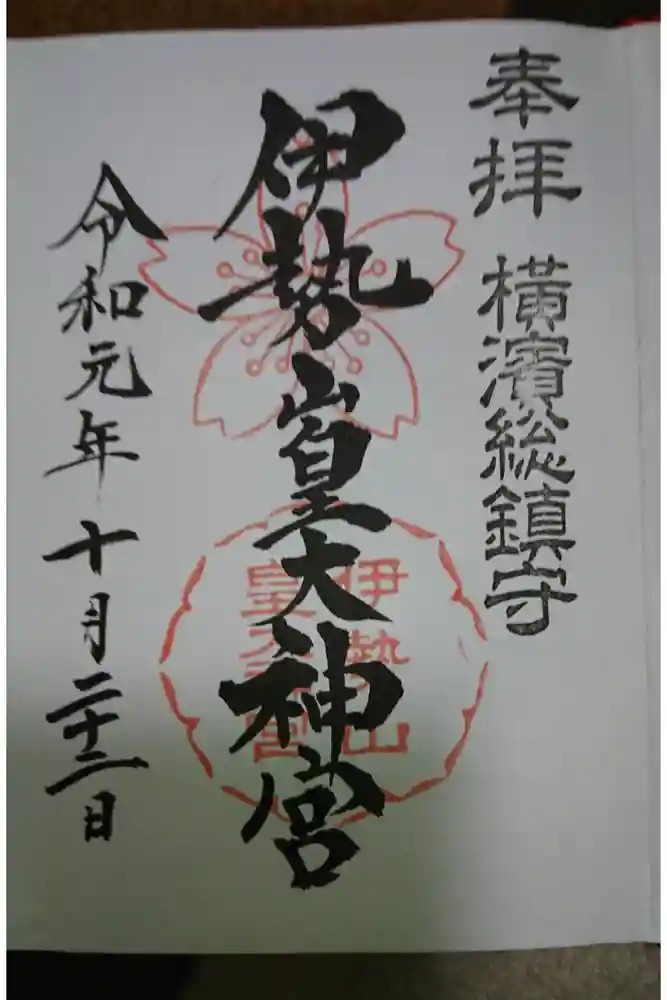 奉拝
横濱総鎮守
伊勢山皇大神宮
伊勢山
皇大神宮
令和元年十月二十二日